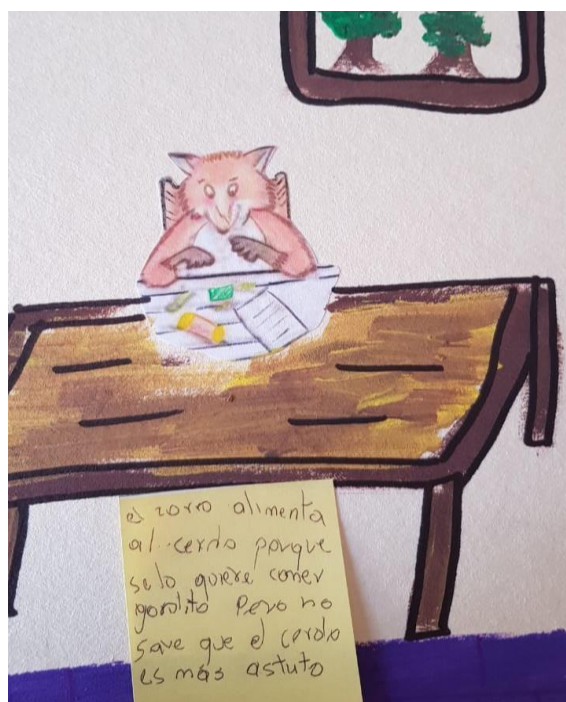 el zorro alimenta
al cerdo porque
se lo quiere comer
gordito Pero no
save que el cerdo
es más astuto